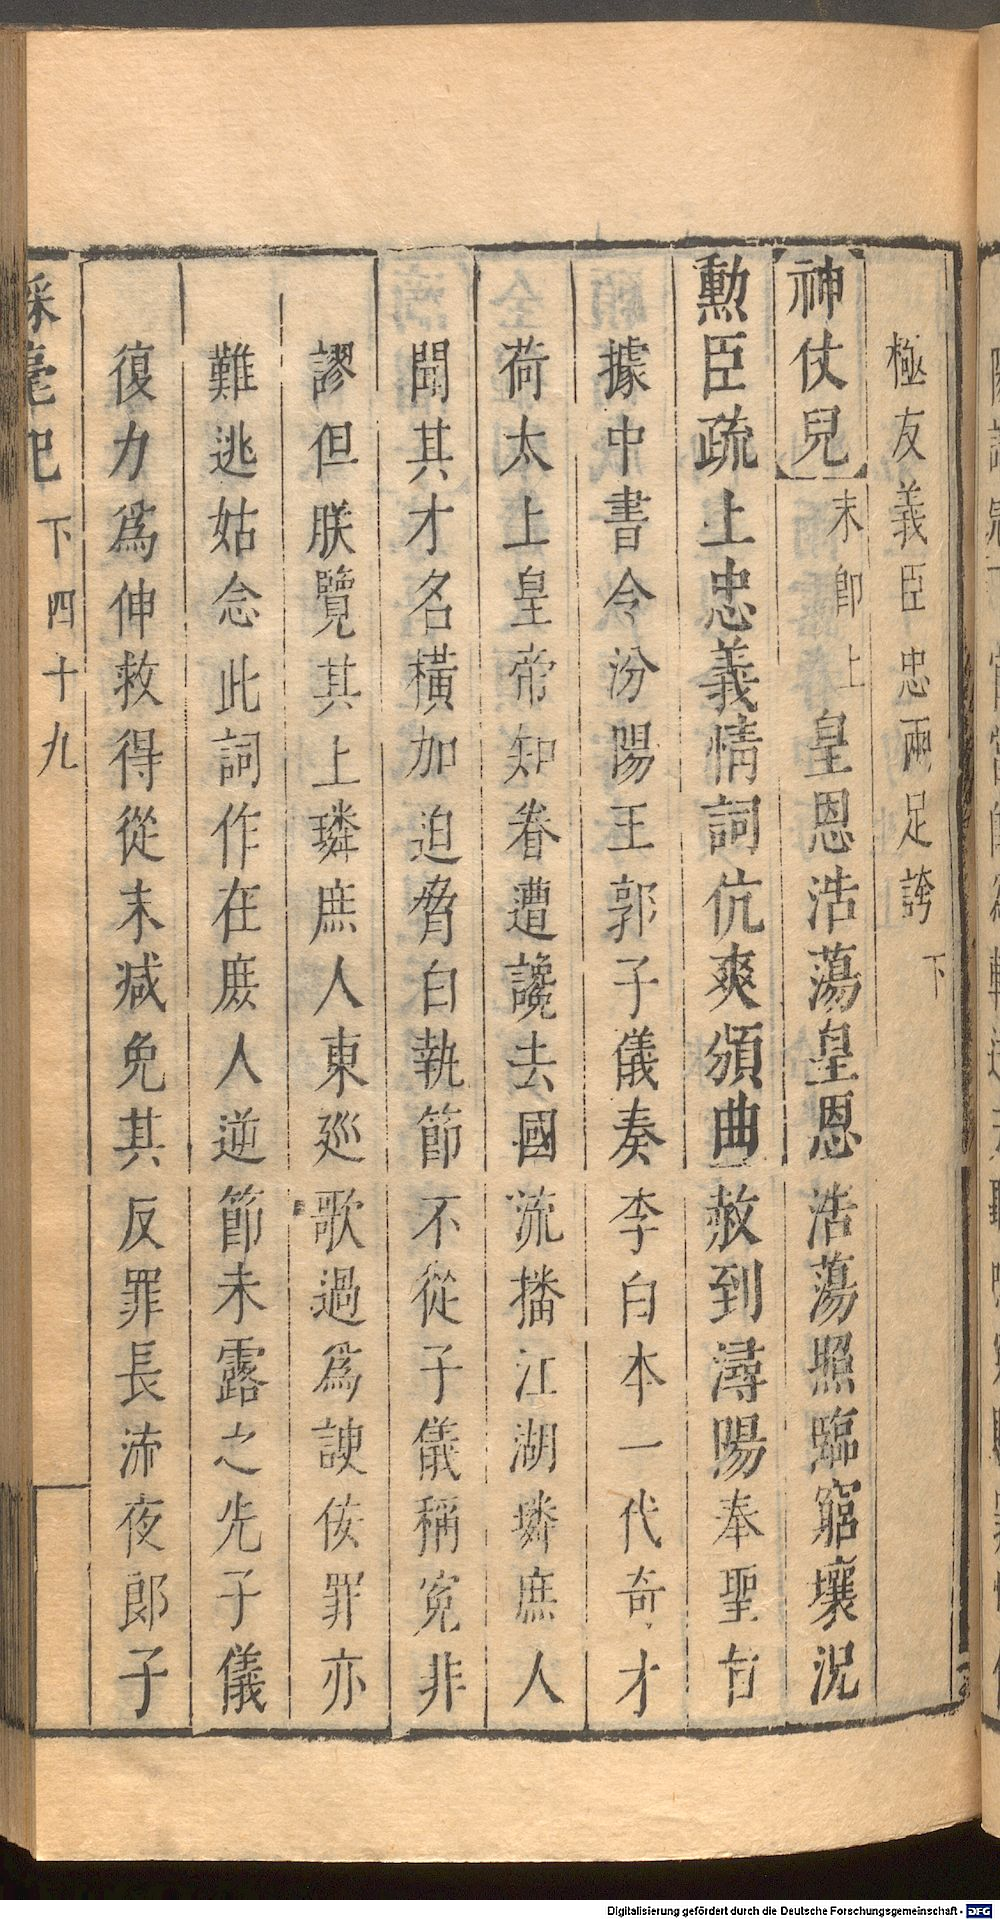 極友義臣忠兩足誇下
神仗兒末卽上皇恩浩蕩皇恩浩蕩照臨窮壤況
勲臣疏上忠義情詞伉爽頒曲赦到潯陽奉聖旨
據中書令汾陽王郭子儀奏李白本一代奇才
荷太上皇帝知眷遭讒去國流播江湖璘庶人
聞其才名橫加迫脅白執節不從子儀稱寃非
謬但朕覽其上璘庶人東廵歌過爲諛佞罪亦
難逃姑念此詞作在庶人逆節未露之先子儀
復力爲伸救得從末减免其反罪長流夜郎子
綵毫記 下 四十九
Digitalisierung gefördert durch die Deutsche Forschungsgemeinschaft - DFG